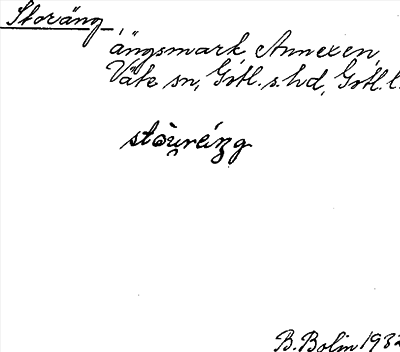 Storäng,
ängsmark Annexen,
Väte sn, Gotl. s. hd, Gotl. l.
stòu̯rei̯ŋg
B. Bolin 1932